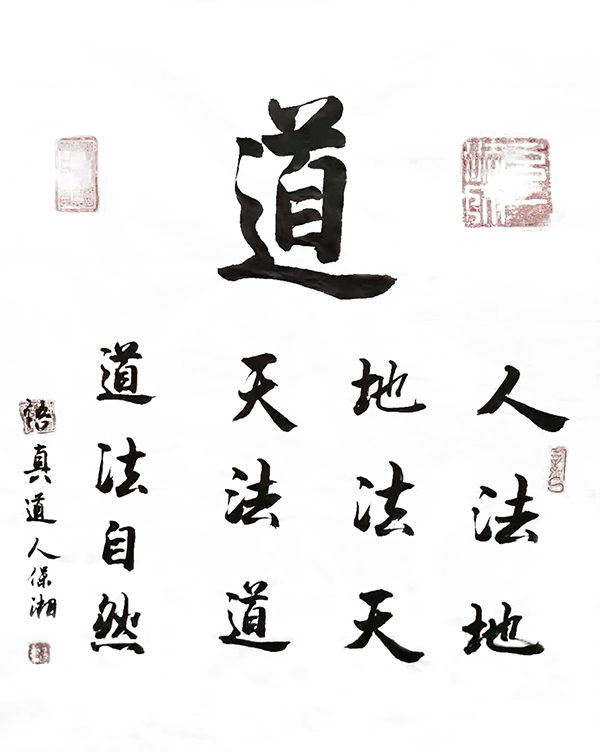 道
人法地
地法天
天法道
道法自然
悟真道人保湘